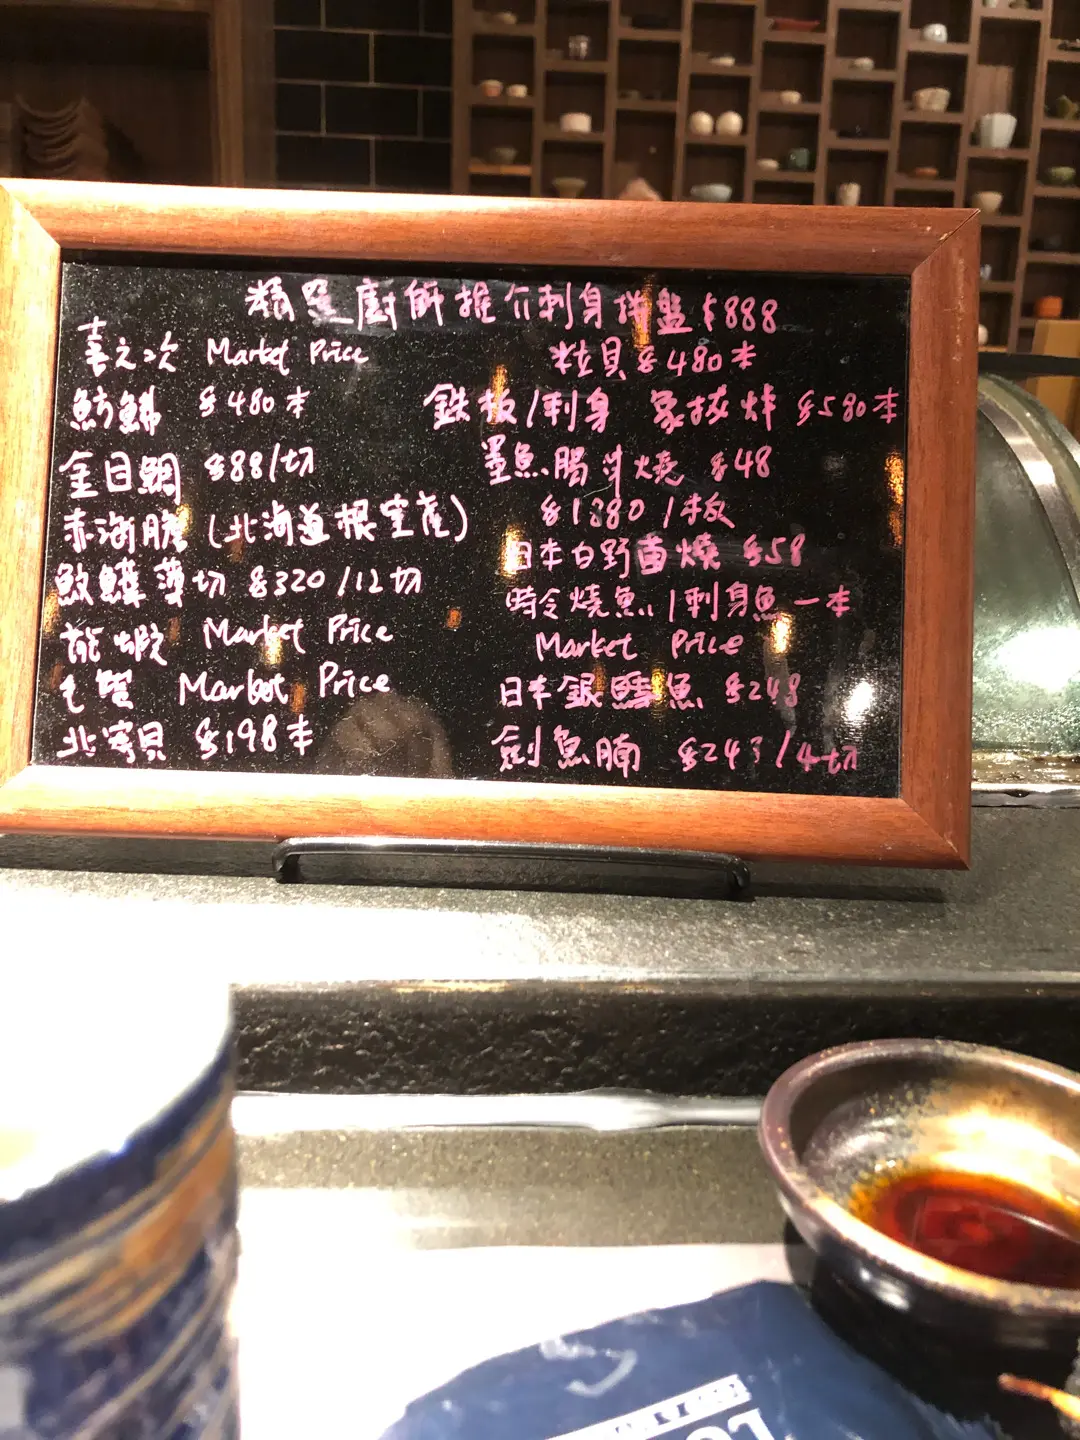 精選廚師推介刺身拼盤 $888
喜之次 Market Price
魴鮄 $480本
金目鯛 $88/切
赤海膽 (北海道根室產)
鮫鱇薄切 $320/12切
龍蝦 Market Price
毛蟹 Market Price
北寄貝 $198本
粒貝 $480本
鉄板/刺身 象拔蚌 $580本
墨魚腸 燒 $48
$1380/枚
日本白野菌燒 $58
時令燒魚/刺身魚一本
Market Price
日本銀鱈魚 $248
劍魚腩 $243/4切